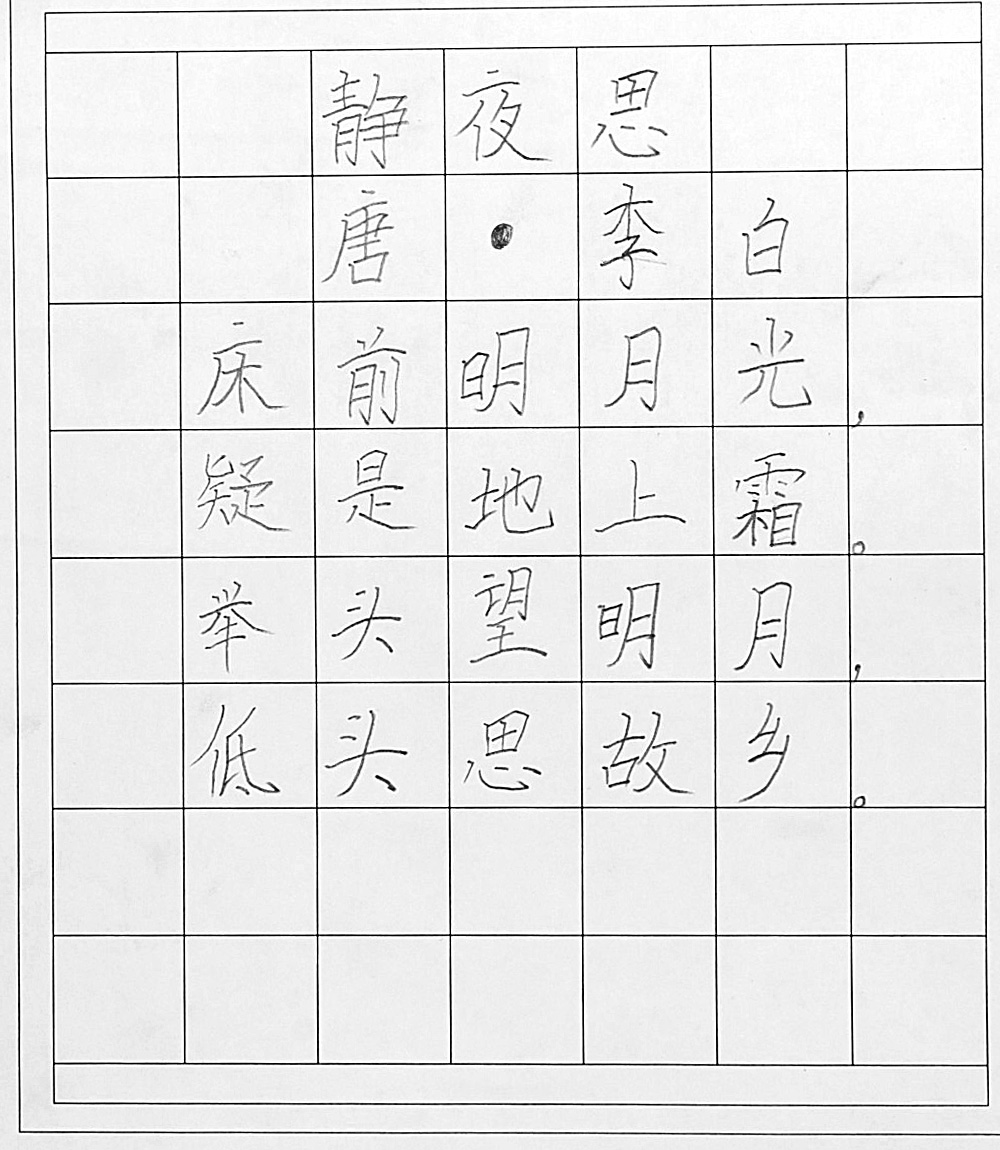 静夜思
唐·李白
床前明月光，
疑是地上霜。
举头望明月，
低头思故乡。